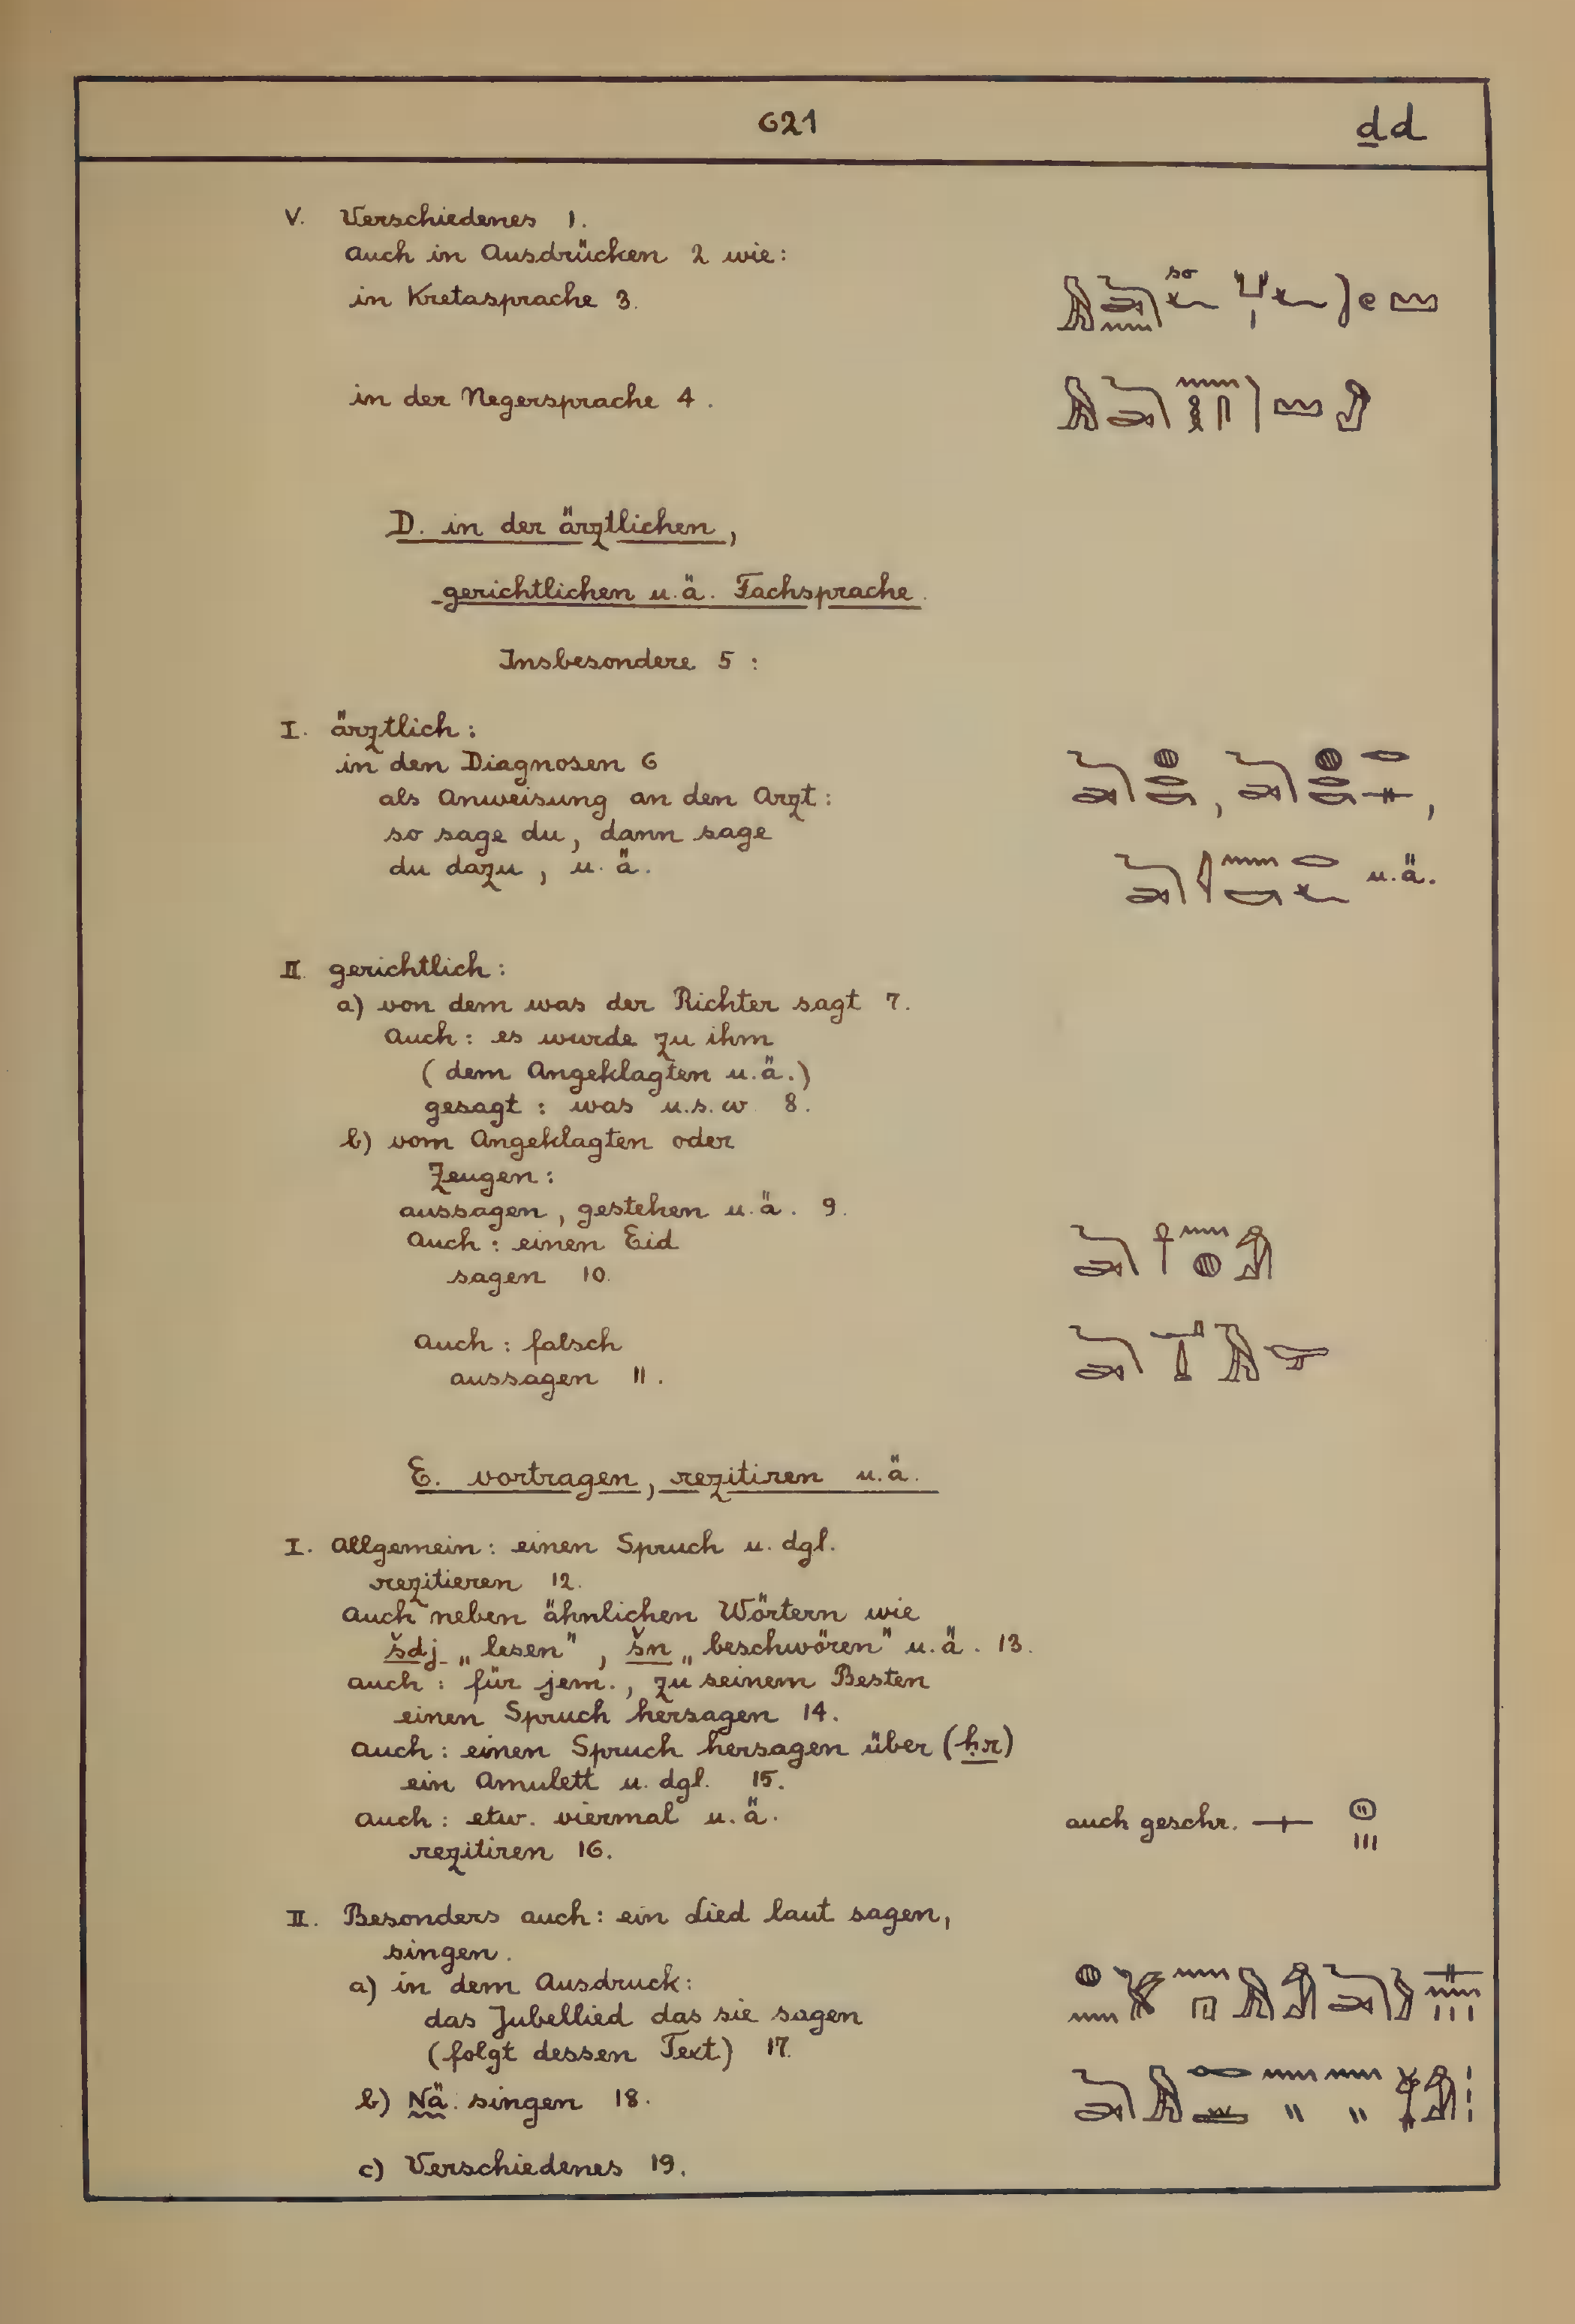 621
ḏd
V. Verschiedenes 1.
auch in Ausdrücken 2 wie:
so
in Kretasprache 3.
in der Negersprache 4.
D. in der ärztlichen,
gerichtlichen u.ä. Fachsprache.
Insbesondere 5:
I. ärztlich:
in den Diagnosen 6
als Anweisung an den Arzt:
so sage du, dann sage
du dazu, u.ä.
u.ä.
II. gerichtlich:
a) von dem was der Richter sagt 7.
Auch: es wurde zu ihm
(dem Angeklagten u.ä.)
gesagt: was u.s.w 8.
b) vom Angeklagten oder
Zeugen:
aussagen, gestehen u.ä. 9.
Auch: einen Eid
sagen 10.
Auch: falsch
aussagen 11.
E. vortragen, rezitiren u.ä.
I. Allgemein: einen Spruch u. dgl.
rezitieren 12.
auch neben ähnlichen Wörtern wie
šdj „lesen", šn „beschwören" u.ä. 13.
auch: für jem., zu seinem Besten
einen Spruch hersagen 14.
auch: einen Spruch hersagen über (ḥr)
ein Amulett u. dgl. 15.
auch: etw. viermal u.ä.
rezitiren 16.
auch geschr.
II. Besonders auch: ein Lied laut sagen,
singen.
a) in dem Ausdruck:
das Jubellied das sie sagen
(folgt dessen Text) 17.
b) Nä. singen 18.
c) Verschiedenes 19.